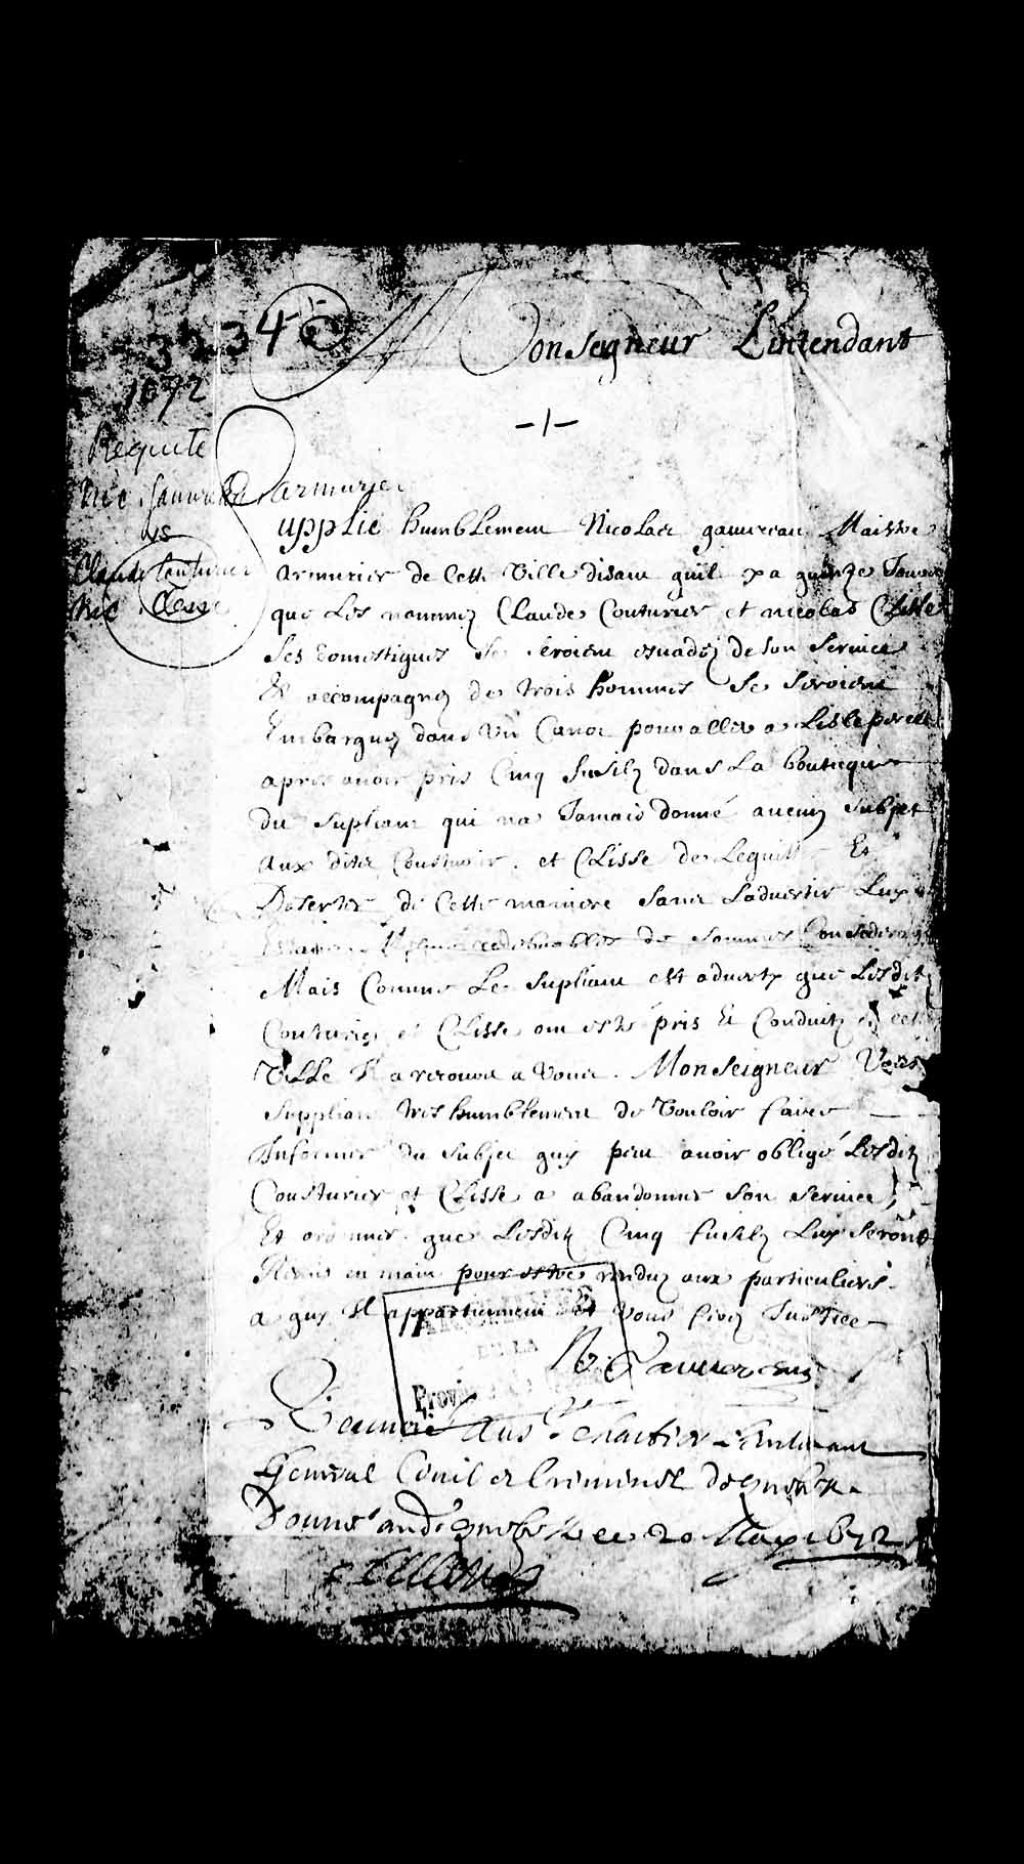 34e
A Monseigneur Lintendant
1672
-1-
Requete
Nic. Gauvreau armurier
vs
Claude Couturier
Nic Clisse
Supplie humblement Nicolas gauureau Maistre
armurier de Cette Ville disant quil y a quinze Jours
que Les nommez Claude Couturier et nicolas Clisse
Ses domestiques Se seroient esuadez de son Seruice
Et accompagnez de trois hommes Se Seroient
Embarquez dans Vn Canot pour aller a Lisle percée
apres auoir pris Cinq fusilz dans La boutique
du Supliant qui na Jamais donné aucun Subjet
aux ditz Cousturier et Clisse de Lequitter Et
Deserter de Cette maniere Sans Laduertir Luy
redeuables de Sommes Considerables
Mais Comme Le Supliant est aduerty que Lesditz
Couturier et Clisse ont esté pris Et Conduitz en cette
Ville Il a recours a Vous Monseigneur Vous
Suppliant tres humblement de Vouloir faire
Informer du Subjet quy peut auoir obligé Lesditz
Cousturier et Clisse a abandonner Son Seruice
Et ordonner que Lesditz Cinq fusilz Luy Seront
Remis en main pour estre renduz aux particuliers
a quy Il appartiennent Et Vous ferez Justice
N. Gauureau
ARCHIVES
DE LA
Province
Renuoié au Sr Chartier Lieutenant
General Ciuil et Criminel de quebek
Donné audit quebek ce 20 May 1672
Talon